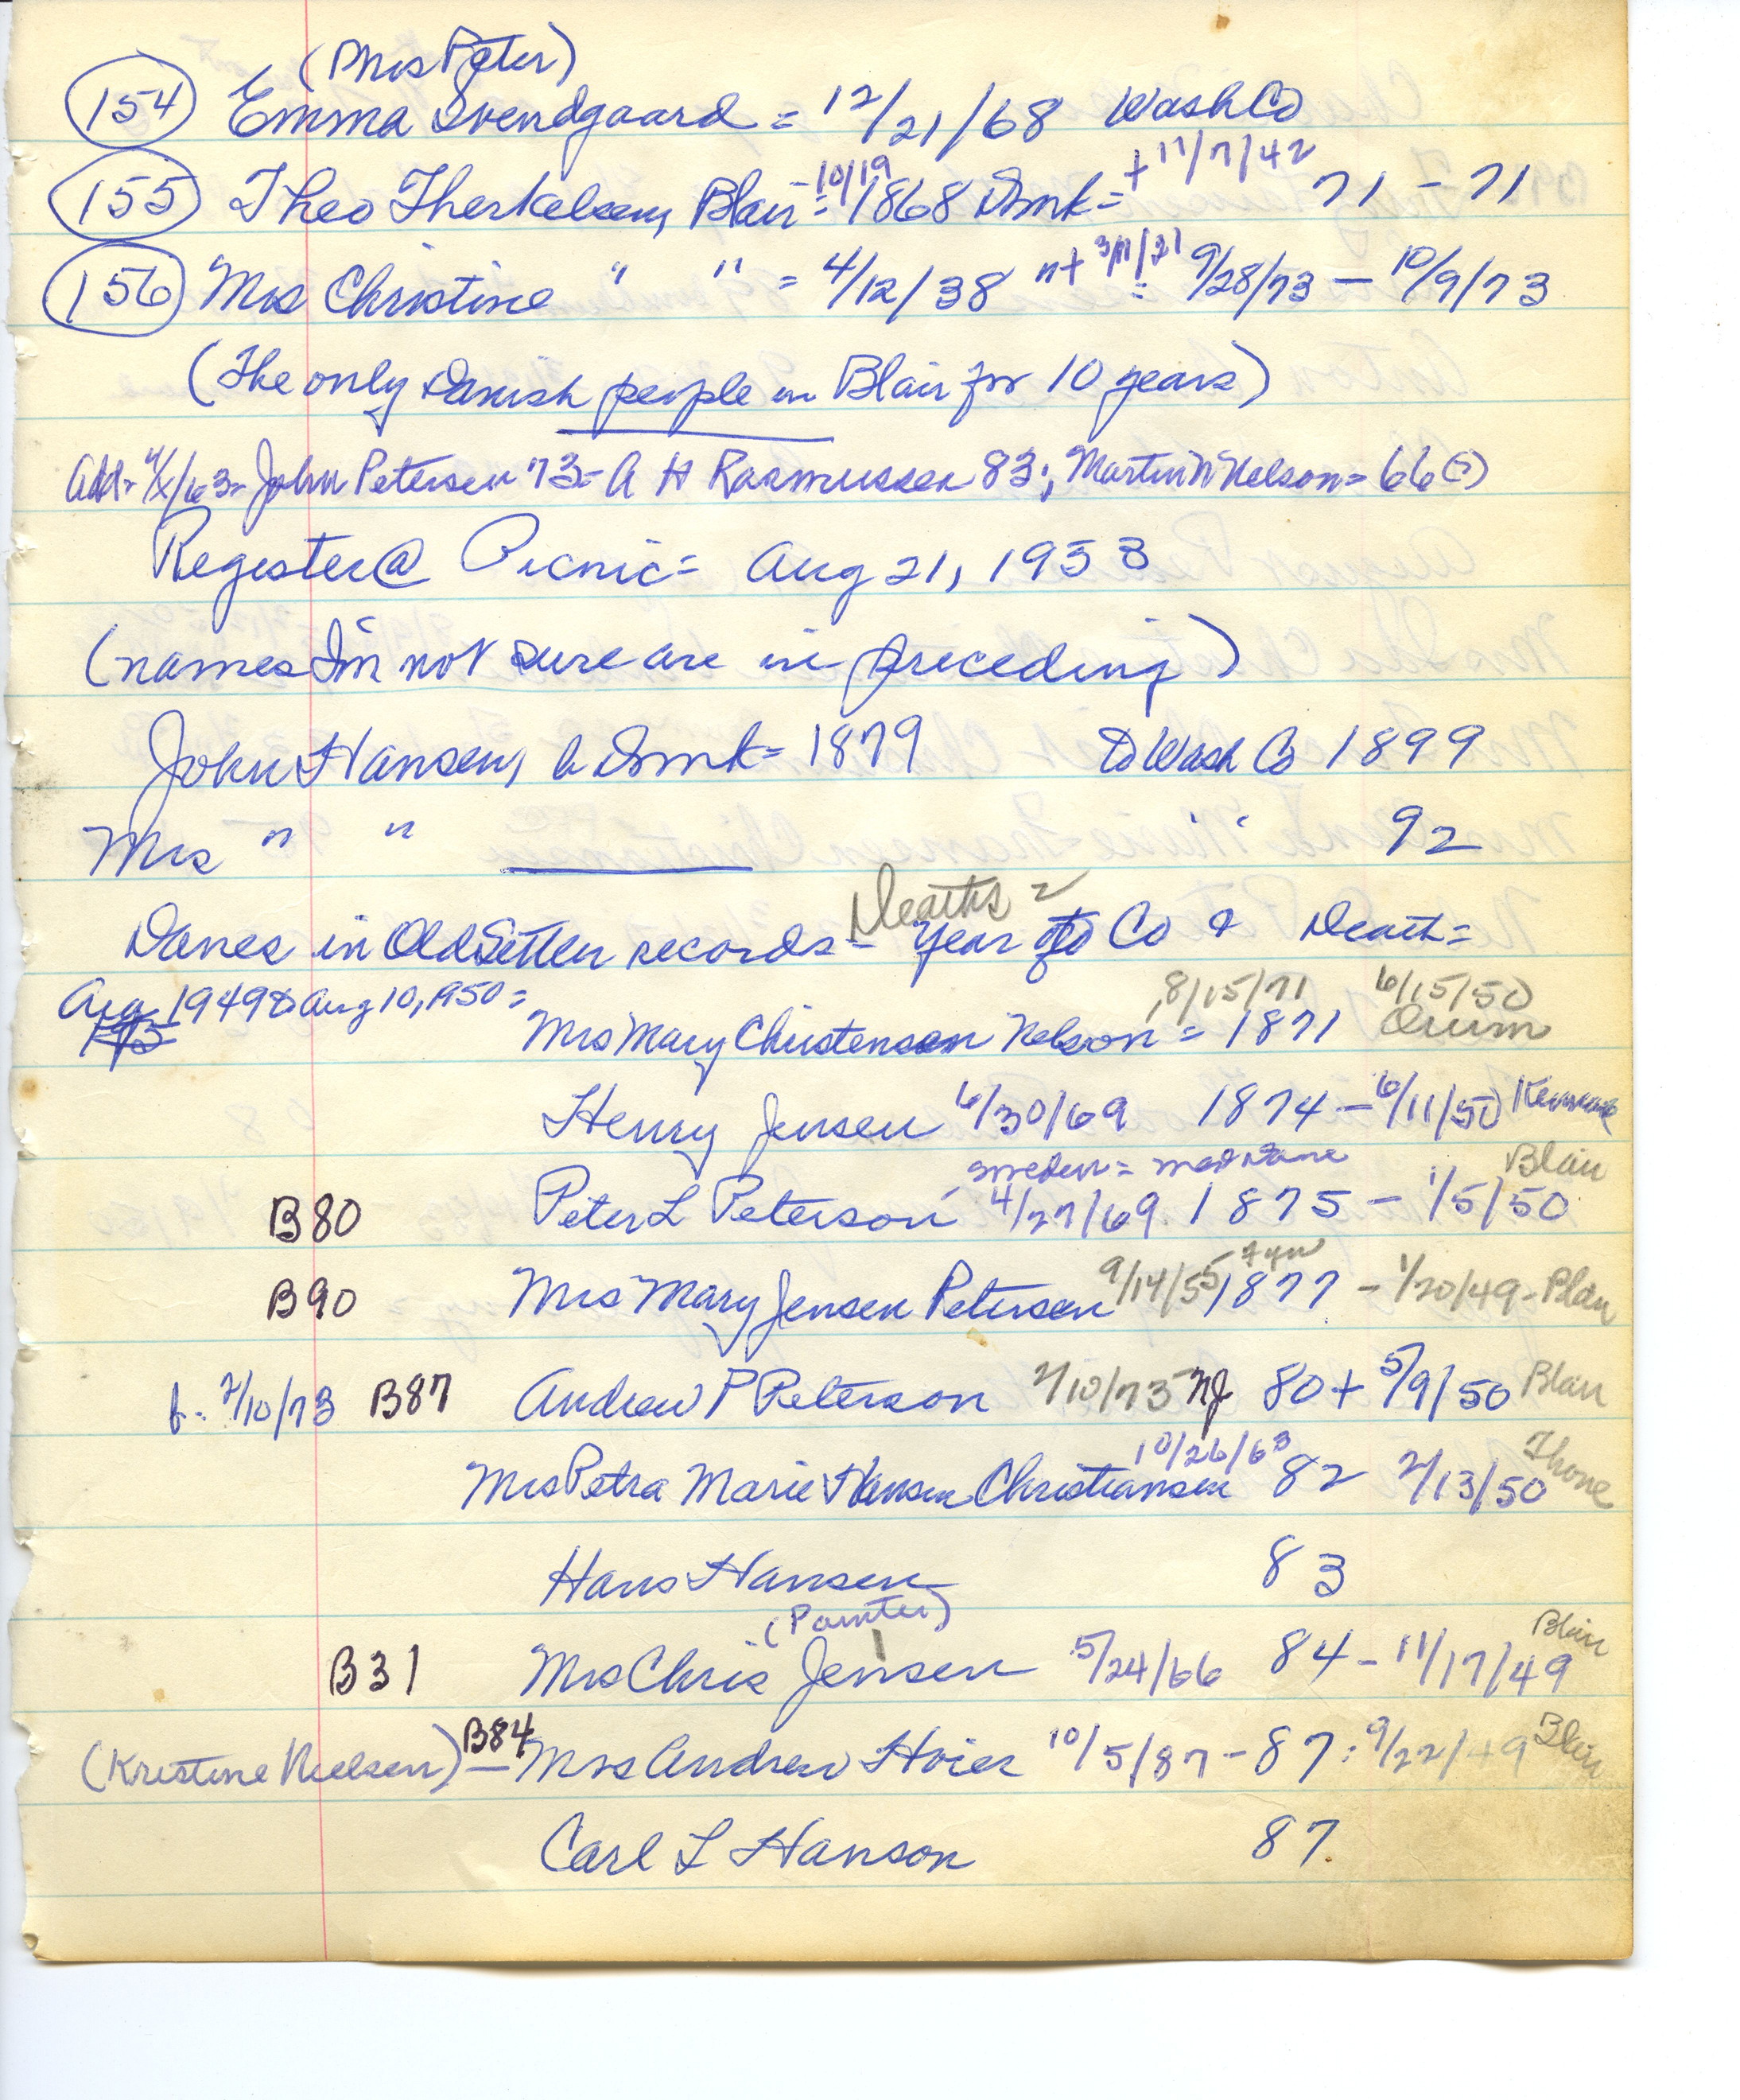 (Mrs Peter)
154 Emma Svendgaard = 12/21/68 Wash Co
155 Theo Therkelsen, Blair = 10/19 1868 Dmk = + 11/7/42 71 - 71
156 Mrs Christine " " = 4/12/38 nt 3/11/21 = 9/28/73 - 10/9/73
(The only Danish people in Blair for 10 years)
Add = 4/ /63 = John Petersen 73 - A H Rasmussen 83; Martin N Nelson = 66 (?)
Register @ Picnic = Aug 21, 1953
(names I'm not sure are in preceding)
John Hansen, b Dmk = 1879 to Wash Co 1899
Mrs " " " " 92
Deaths =
Danes in Old Settler records - Year to Co & Death =
Aug 1949 & Aug 10, 1950 =
Mrs Mary Christensen Nelson = 8/15/71 1871 6/15/50 Orum
Henry Jensen 6/30/69 1874 - 6/11/50 Kennard
B80 Peter L Peterson - Sweden = med Dane 4/27/69. 1875 - 1/5/50 Blair
B90 Mrs Mary Jensen Petersen 9/14/55 Fyn 1877 - 1/20/49 - Blair
b. 2/10/73 B87 Andrew P Peterson 2/10/73 NJ 80 + 5/9/50 Blair
Mrs Petra Marie Hansen Christiansen 10/26/63 82 2/13/50 Thone
Hans Hansen 83
(Painter)
B31 Mrs Chris Jensen 5/24/66 84 - 11/17/49 Blair
(Kristine Nielsen) B84 - Mrs Andrew Hoier 10/5/87 - 87: 9/22/49 Blair
Carl L Hanson 87.